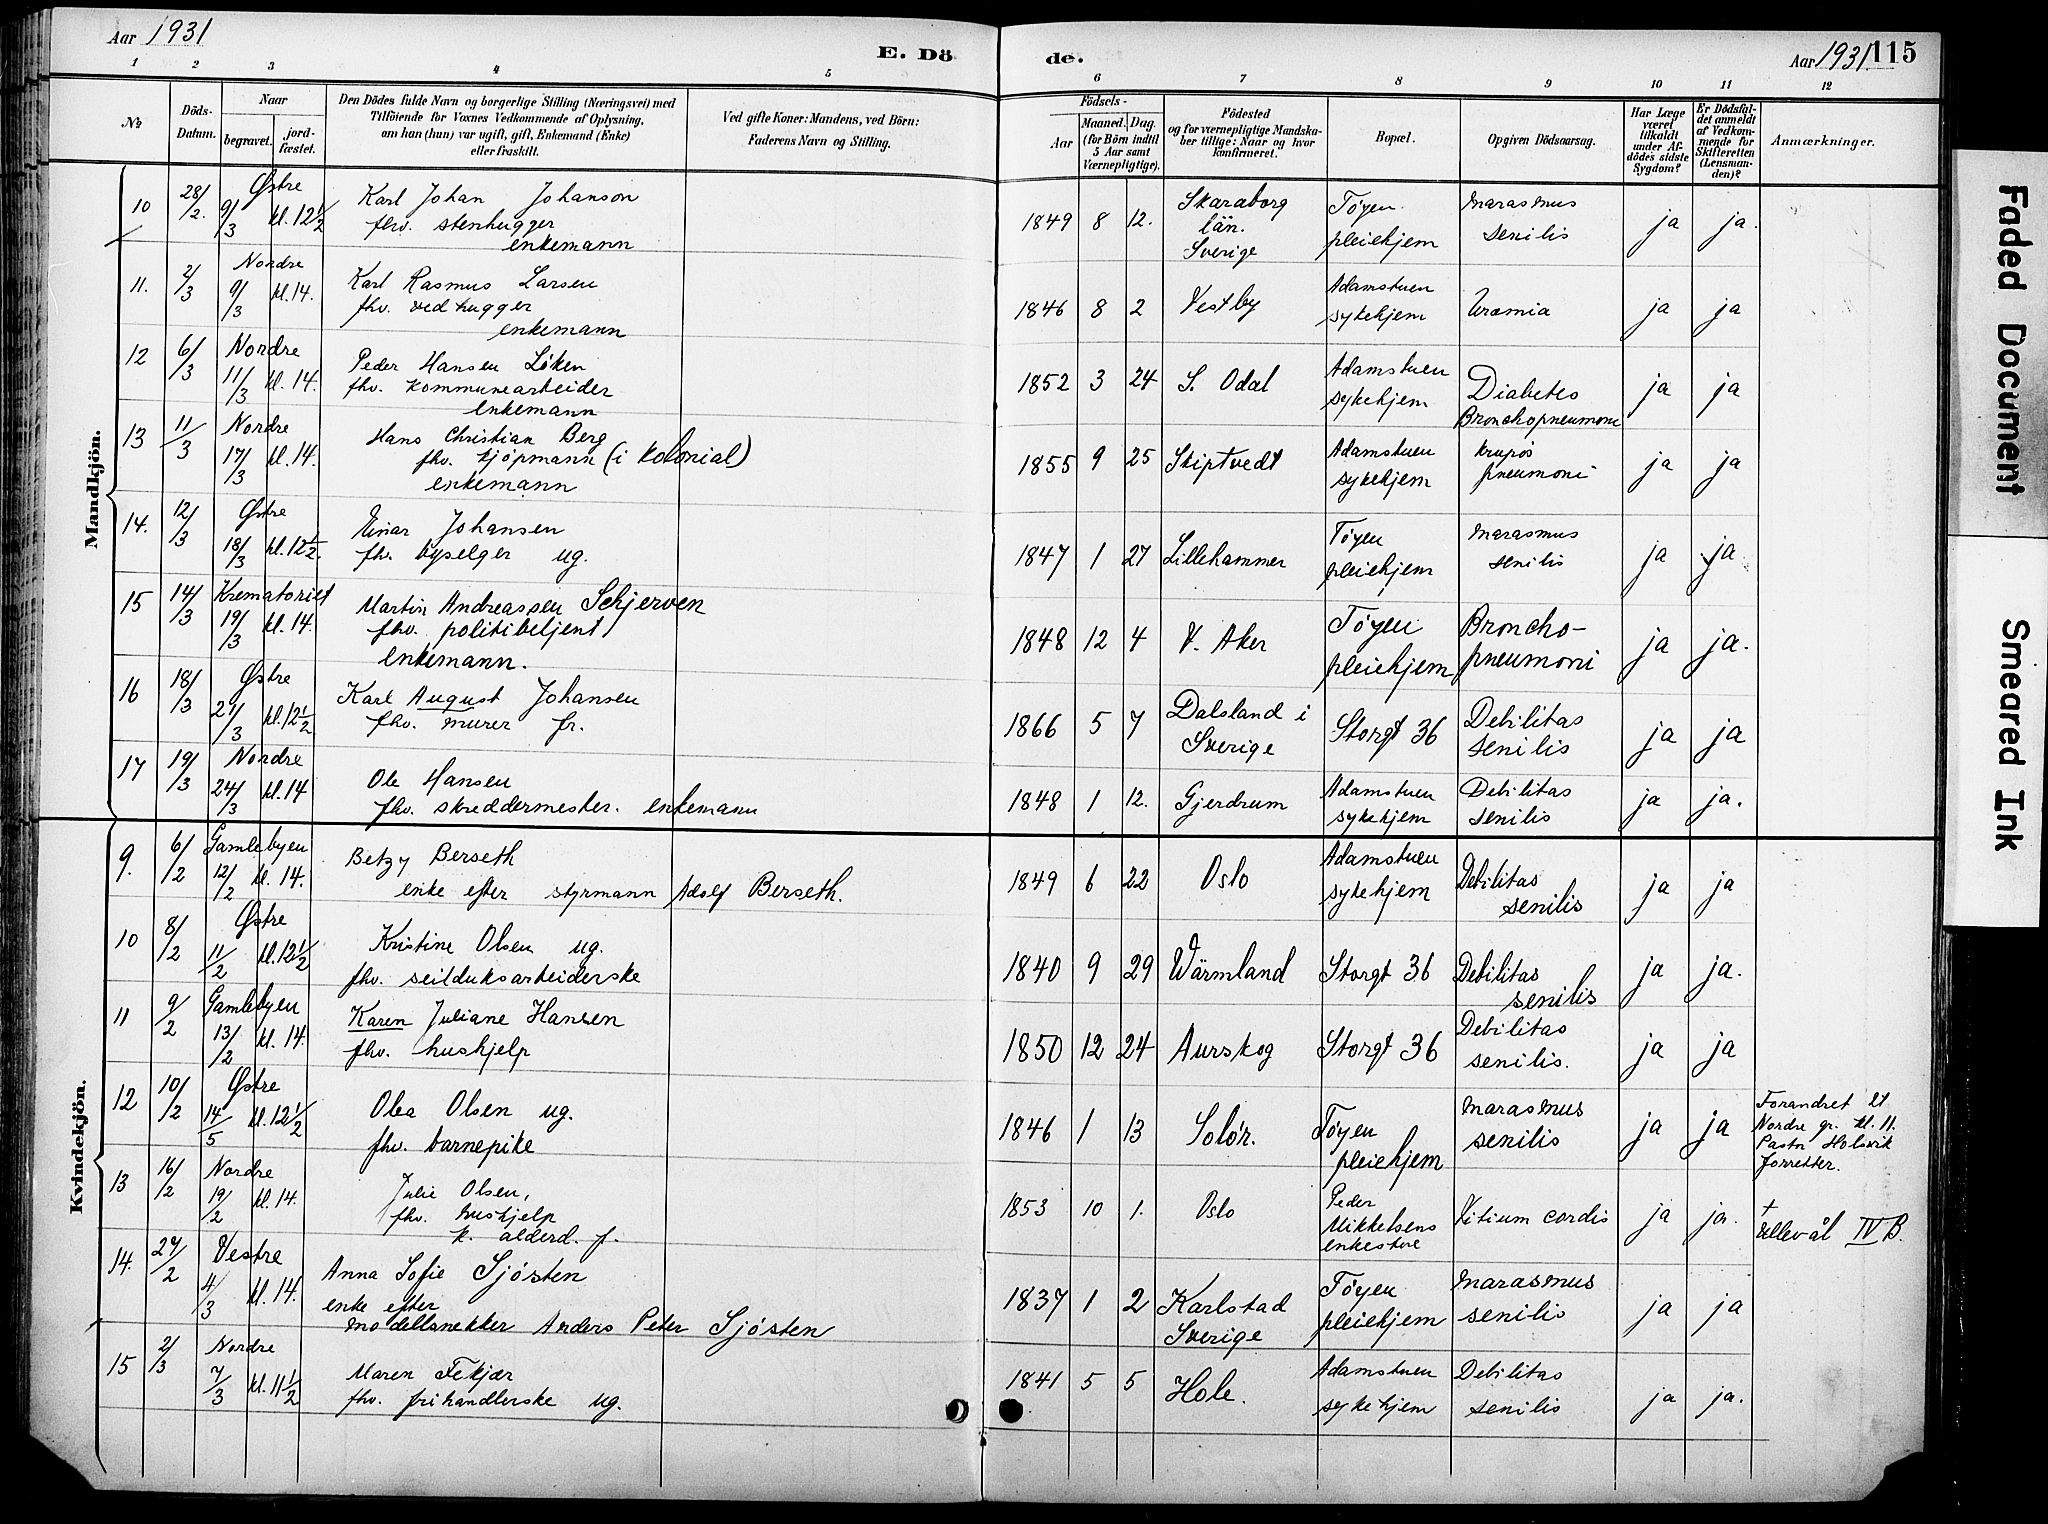 Aar 1931
E. Dö
de.
Aar 1931. 115
1 2 3 4 5 6 7 8 9 10 11 12
№
Döds-
Datum.
Naar
begravet.
jord-
fæstet.
Den Dödes fulde Navn og borgerlige Stilling (Næringsvei) med
Tilföiende for Voxnes Vedkommende af Oplysning,
om han (hun) var ugift, gift, Enkemand (Enke)
eller fraskilt.
Ved gifte Koner: Mandens, ved Börn:
Faderens Navn og Stilling.
Födsels-
Aar
Maaned. Dag.
(for Börn indtil
5 Aar samt
Værnepligtige).
Födested
og for værnepligtige Mandska-
ber tillige: Naar og hvor
konfirmeret.
Bopæl.
Opgiven Dödsaarsag.
Har Læge
været
tilkaldt
under Af-
dödes sidste
Sygdom?
Er Dödsfal-
det anmeldt
af Vedkom-
mende for
Skifteretten
(Lensman-
den)?
Anmærkninger.
Mandkjön.
10 28/2. Østre 9/3 kl. 12½ Karl Johan Johanson
fhv. stenhugger
enkemann
1849 8 12. Skaraborg
län.
Sverige
Tøyen
pleiehjem
Marasmus
senilis
ja ja.
11. 2/3 Nordre 9/3 kl. 14. Karl Rasmus Larsen
fhv. vedhugger
enkemann
1846 8 2 Vestby
Adamstuen
sykehjem
Uræmia ja ja
12 6/3 Nordre 11/3 kl. 14. Peder Hansen Løken
fhv. kommunearbeider
enkemann
1852 3 24 S. Odal
Adamstuen
sykehjem
Diabetes
Bronchopneumoni
ja ja
13 11/3 Nordre 17/3 kl. 14. Hans Christian Berg
fhv. kjøpmann (i kolonial)
enkemann
1855 9 25 Skiptvedt
Adamstuen
sykehjem
krupøs
pneumoni
ja ja
14. 12/3 Østre 18/3 kl. 12½. Einar Johansen
fhv. byselger ug.
1847 1 27 Lillehammer
Tøyen
pleiehjem
Marasmus
senilis
ja ja
15 14/3 Krematoriet 19/3 kl. 14. Martin Andreassen Schjerven
fhv. politibetjent
enkemann.
1848 12 4 V. Aker
Tøyen
pleiehjem
Broncho-
pneumoni
ja ja.
16 18/3 Østre 21/3 kl. 12½ Karl August Johansen
fhv. murer fr.
1866 5 7 Dalsland i
Sverige
Storgt 36
Debilitas
senilis
ja ja
17 19/3 Nordre 24/3 kl. 14 Ole Hansen
fhv. skreddermester. enkemann
1848 1 12. Gjerdrum
Adamstuen
sykehjem
Debilitas
senilis
ja ja.
Kvindekjön.
9. 6/2 Gamlebyen 12/2 kl. 14. Betzy Berseth
enke efter styrmann Adolf Berseth.
1849 6 22 Oslo
Adamstuen
sykehjem
Debilitas
senilis
ja ja
10 8/2 Østre 11/2 kl. 12½ Kristine Olsen ug.
fhv. seilduksarbeiderske
1840 9 29 Wärmland
Storgt 36
Debilitas
senilis
ja ja.
11 9/2 Gamlebyen 13/2 kl. 14. Karen Juliane Hansen
fhv. hushjelp
1850 12 24 Aurskog
Storgt 36
Debilitas
senilis.
ja ja
12 10/2 Østre 14/5 kl. 12½ Olea Olsen ug.
fhv. barnepike
1846 1 13 Solør.
Tøyen
pleiehjem
Marasmus
senilis
ja ja
Forandret til
Nordre gr. kl. 11.
Pastor Holsvik
forretter.
13 16/2 Nordre 19/2 kl. 14. Julie Olsen,
fhv. hushjelp
k. alderd. f.
1853 10 1. Oslo
Peder
Mikkelsens
enkestue
Vitium cordis ja ja.
+
Ullevål IV B.
14. 27/2 Vestre 4/3 kl. 14. Anna Sofie Sjösten
enke efter
modellsnekker Anders Peter Sjösten
1837 1 2 Karlstad
Sverige
Tøyen
pleiehjem
Marasmus
senilis
ja ja
15 2/3 Nordre 7/3 kl. 11½ Maren Fekjær
fhv. frihandlerske ug.
1841 5 5 Hole.
Adamstuen
sykehjem
Debilitas
senilis
ja ja.
Faded Document
Smeared Ink